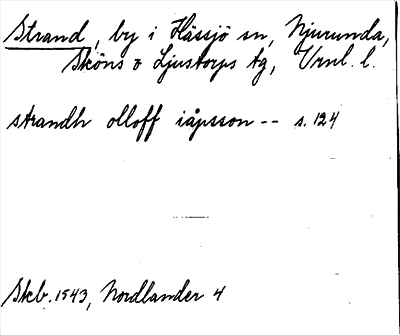 Strand, by i Hässjö sn, Njurunda,
Sköns o Ljustorps tg, Vrnl. l.
strandh olloff iåpsson -- s. 124
Skb. 1543, Nordlander 4